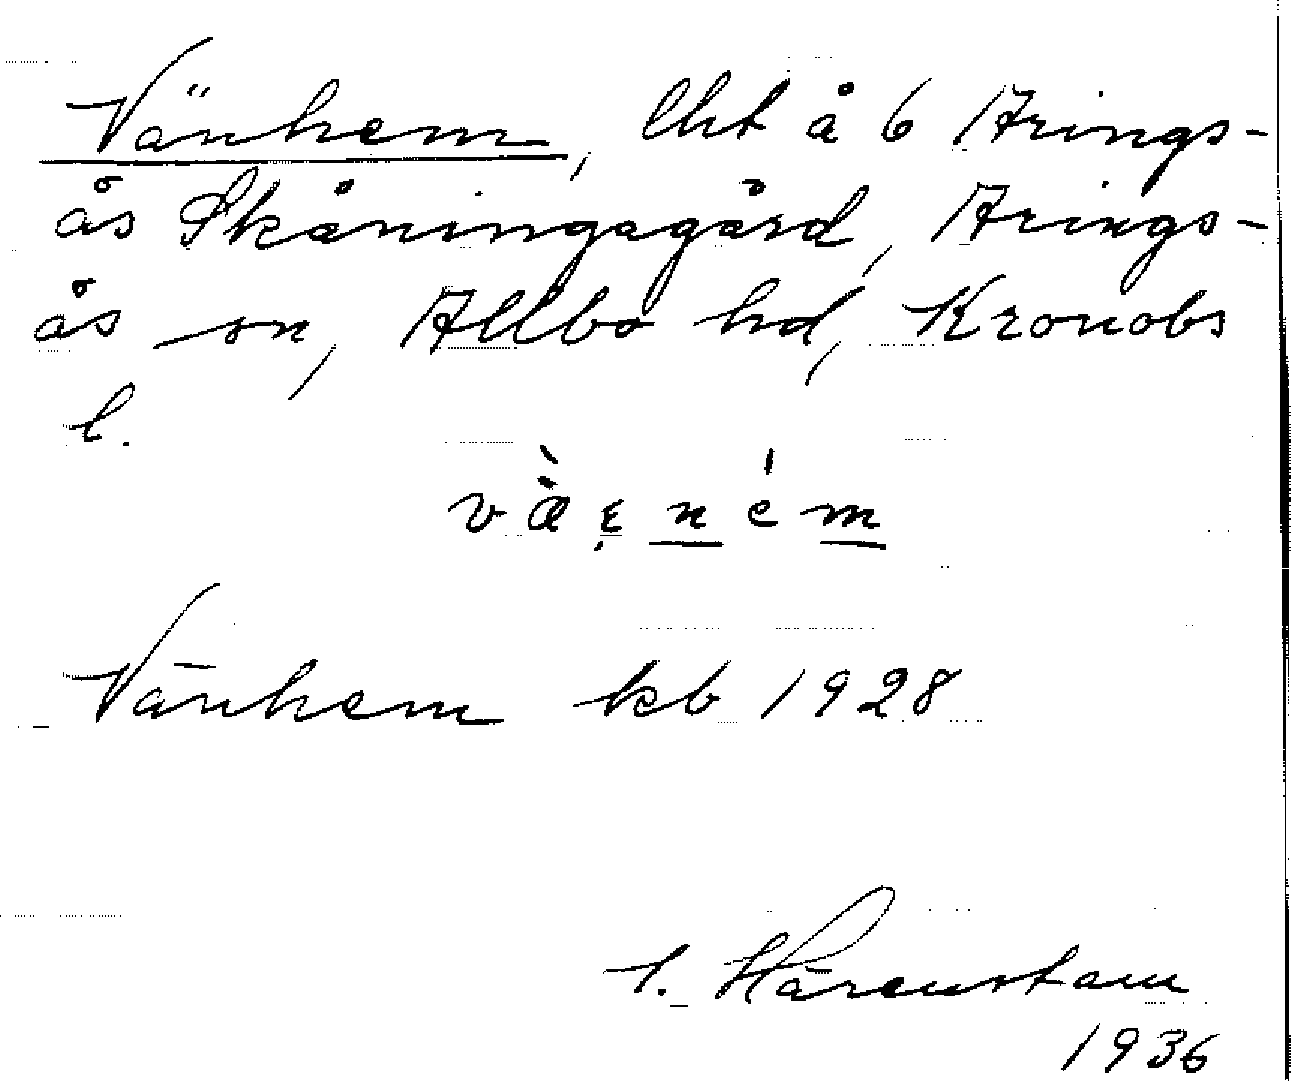 Vänhem, lht å 6 Arings-
ås Skåningagård, Arings-
ås sn, Allbo hd, Kronobs
l.
Vänhem kb 1928
Härenstam
1936